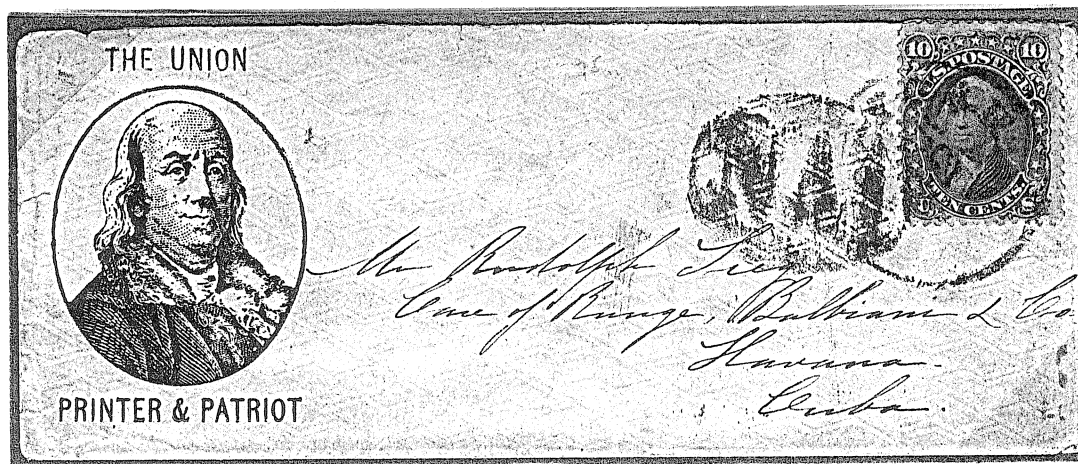 THE UNION
PRINTER & PATRIOT
10 10
U.S. POSTAGE
TEN CENTS.
Mr Rudolph
Care of Runge, Balbiani & Co.
Havana.
Cuba.